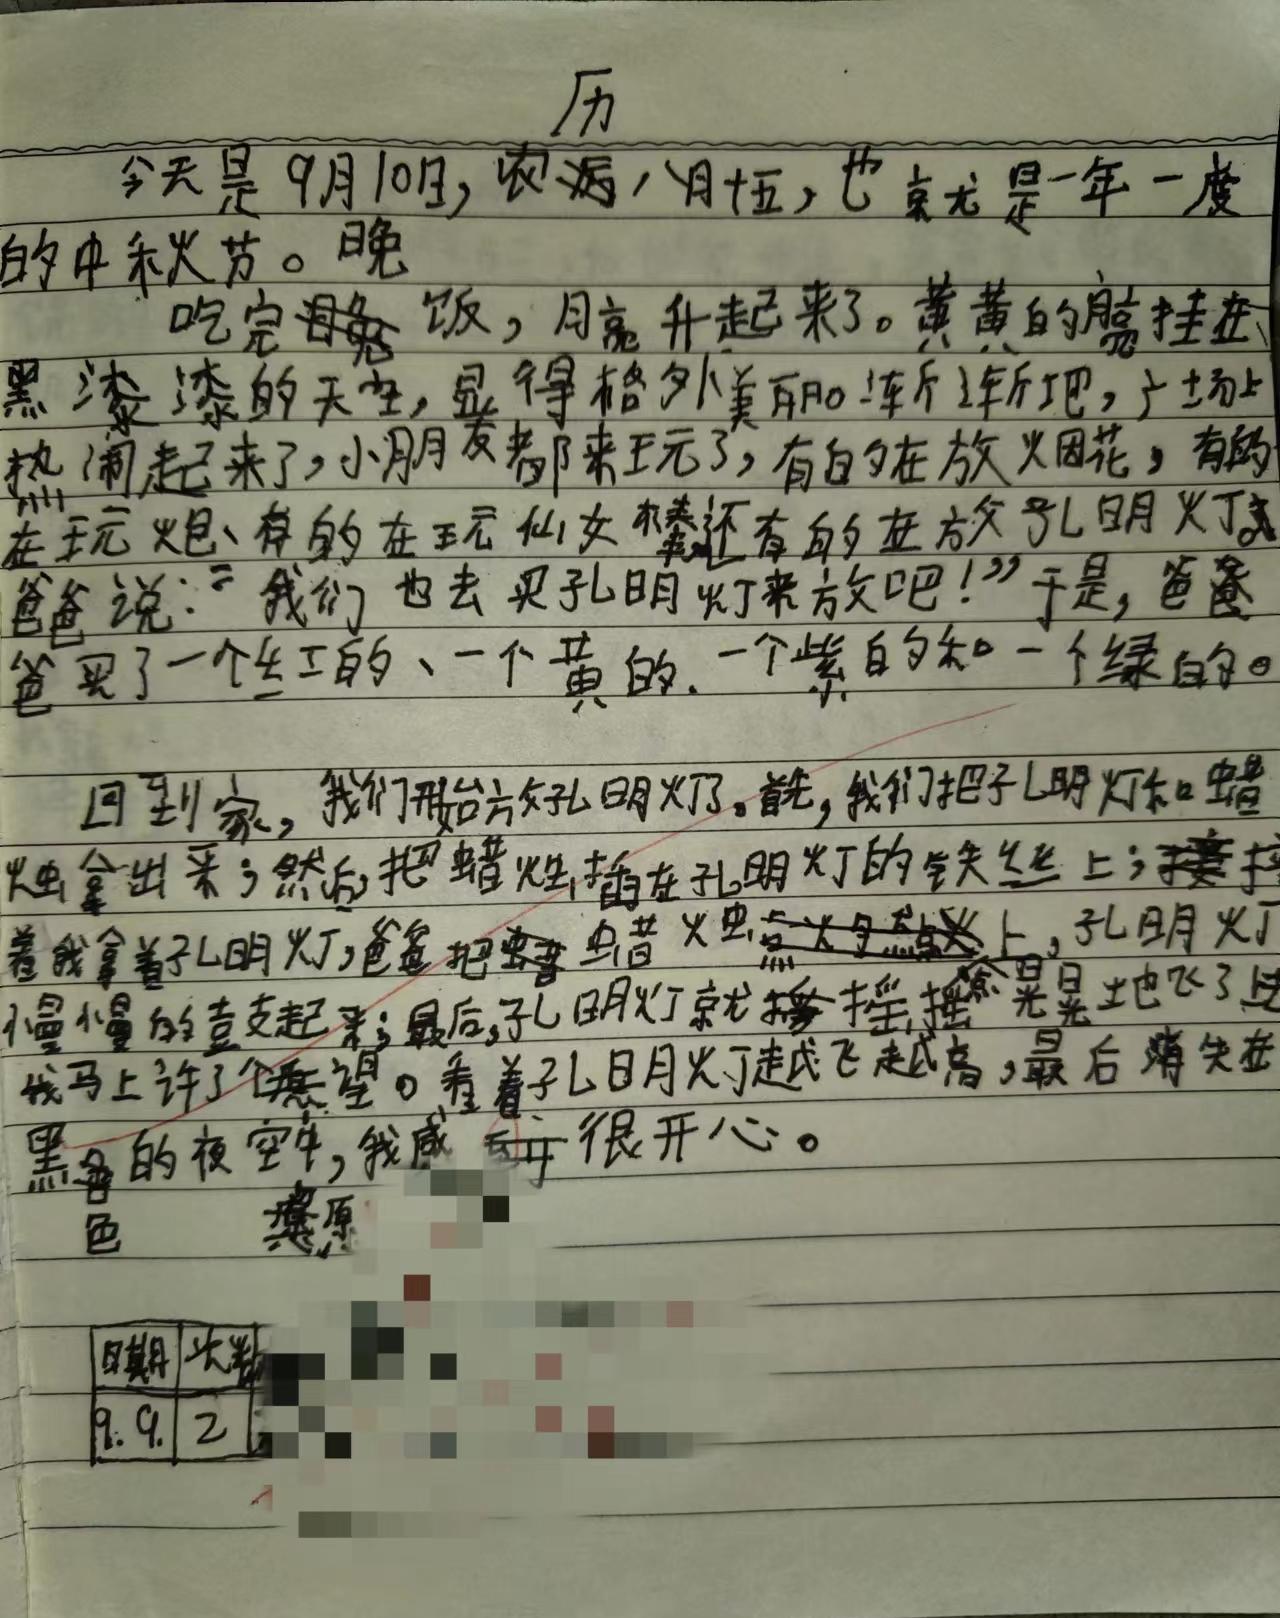 历
今天是9月10日，农历八月十五，也就是一年一度
的中秋节。晚
吃完晚饭，月亮升起来了。黄黄的月亮挂在
黑漆漆的天空，显得格外美丽。渐渐地，广场上
热闹起来了，小朋友都来玩了，有的在放烟花，有的
在玩炮、有的在玩仙女棒还有的在放孔明灯。
爸爸说：“我们也去买孔明灯来放吧！”于是，爸爸
爸买了一个红的、一个黄的、一个紫的和一个绿的。
回到家，我们开始放孔明灯了。首先，我们把孔明灯和蜡
烛拿出来；然后，把蜡烛插在孔明灯的铁丝上；接
着我拿着孔明灯，爸爸把蜡烛点火上，孔明灯
慢慢的支起来；最后，孔明灯就摇摇晃晃地飞了上
我马上许了个愿望。看着孔明灯越飞越高，最后消失在
黑色的夜空中，我感到很开心。
色 愿
日期 次数
9.9. 2